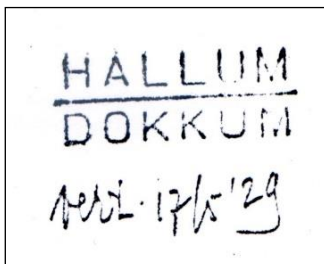 HALLUM
DOKKUM
vert. 17/5 '29